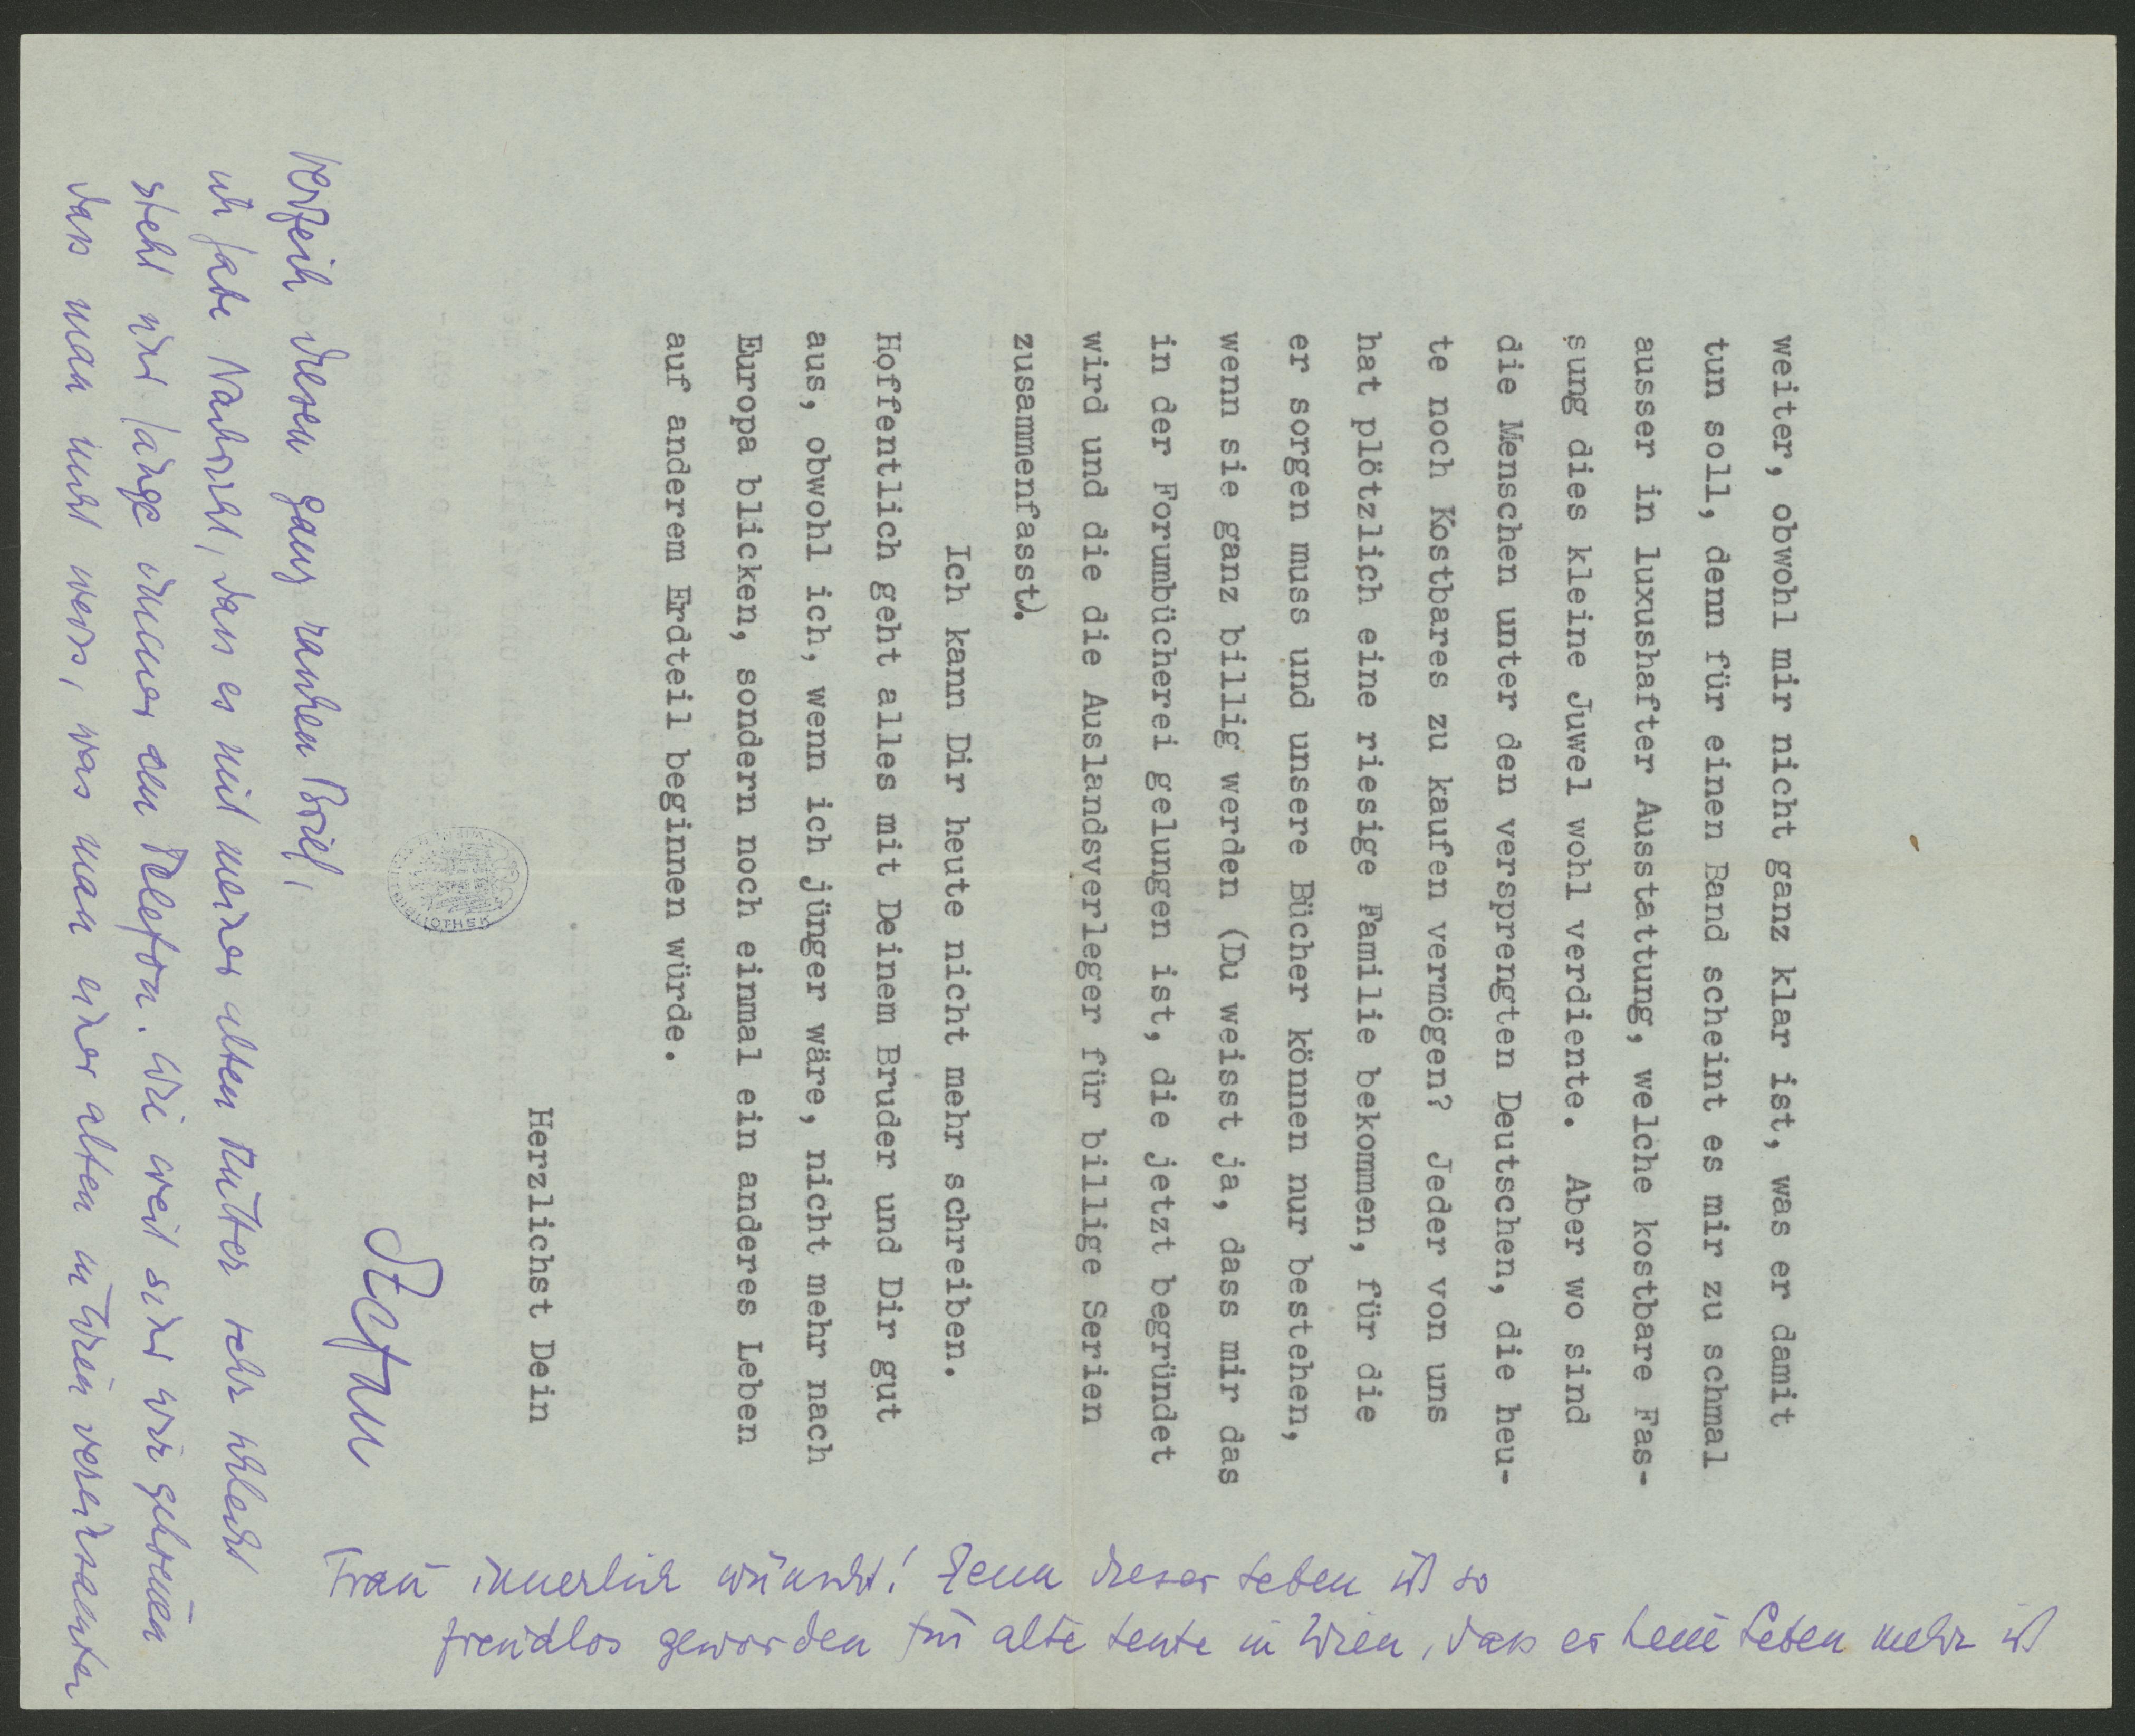 weiter, obwohl mir nicht ganz klar ist, was er damit
tun soll, denn für einen Band scheint es mir zu schmal
ausser in luxushafter Ausstattung, welche kostbare Fas-
sung dies kleine Juwel wohl verdiente.  Aber wo sind
die Menschen unter den versprengten Deutschen, die heu-
te noch Kostbares zu kaufen vermögen?  Jeder von uns
hat plötzlich eine riesige Familie bekommen, für die
er sorgen muss und unsere Bücher können nur bestehen,
wenn sie ganz billig werden (Du weisst ja, dass mir das
in der Forumbücherei gelungen ist, die jetzt begründet
wird und die die Auslandsverleger für billige Serien
zusammenfasst).
Ich kann Dir heute nicht mehr schreiben.
Hoffentlich geht alles mit Deinem Bruder und Dir gut
aus, obwohl ich, wenn ich jünger wäre, nicht mehr nach
Europa blicken, sondern noch einmal ein anderes Leben
auf anderem Erdteil beginnen würde.
Herzlichst Dein
Stefan
Verzeih diesen ganz raschen Brief,
ich habe Nachricht, dass es mit meiner alten Mutter sehr schlecht
steht und hänge immer am Telefon. Wie weit sind wir gekommen
dass man nicht weiss, was man einer alten in Wien vereinsamten
Frau innerlich wünscht! Denn dieses Leben ist so
freudlos geworden für alte Leute in Wien, dass es kein Leben mehr ist